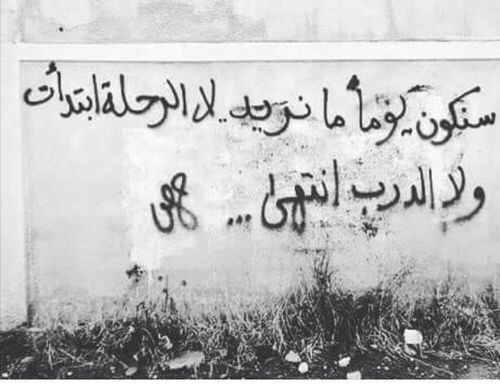 سنكون يوماً ما نريد لا الرحلة ابتدأت
ولا الدرب انتهى ...